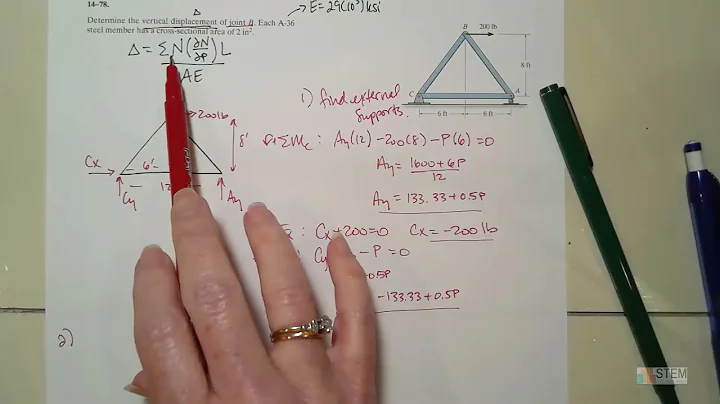 14-78.
Δ
→ E = 29(10³) ksi
Determine the vertical displacement of joint B. Each A-36
steel member has a cross-sectional area of 2 in².
Δ = ΣN(∂N/∂P)L
AE
B
200 lb
8 ft
C
A
6 ft
6 ft
1) find external
supports.
200lb
8'
Cx
6'
12
Cy
Ay
ΣMc : Ay(12) -200(8) -P(6) = 0
Ay = 1600+6P
12
Ay = 133.33+0.5P
: Cx+200=0
Cx = -200 lb
: Cy - P = 0
0.5P
-133.33+0.5P
2)
STEM